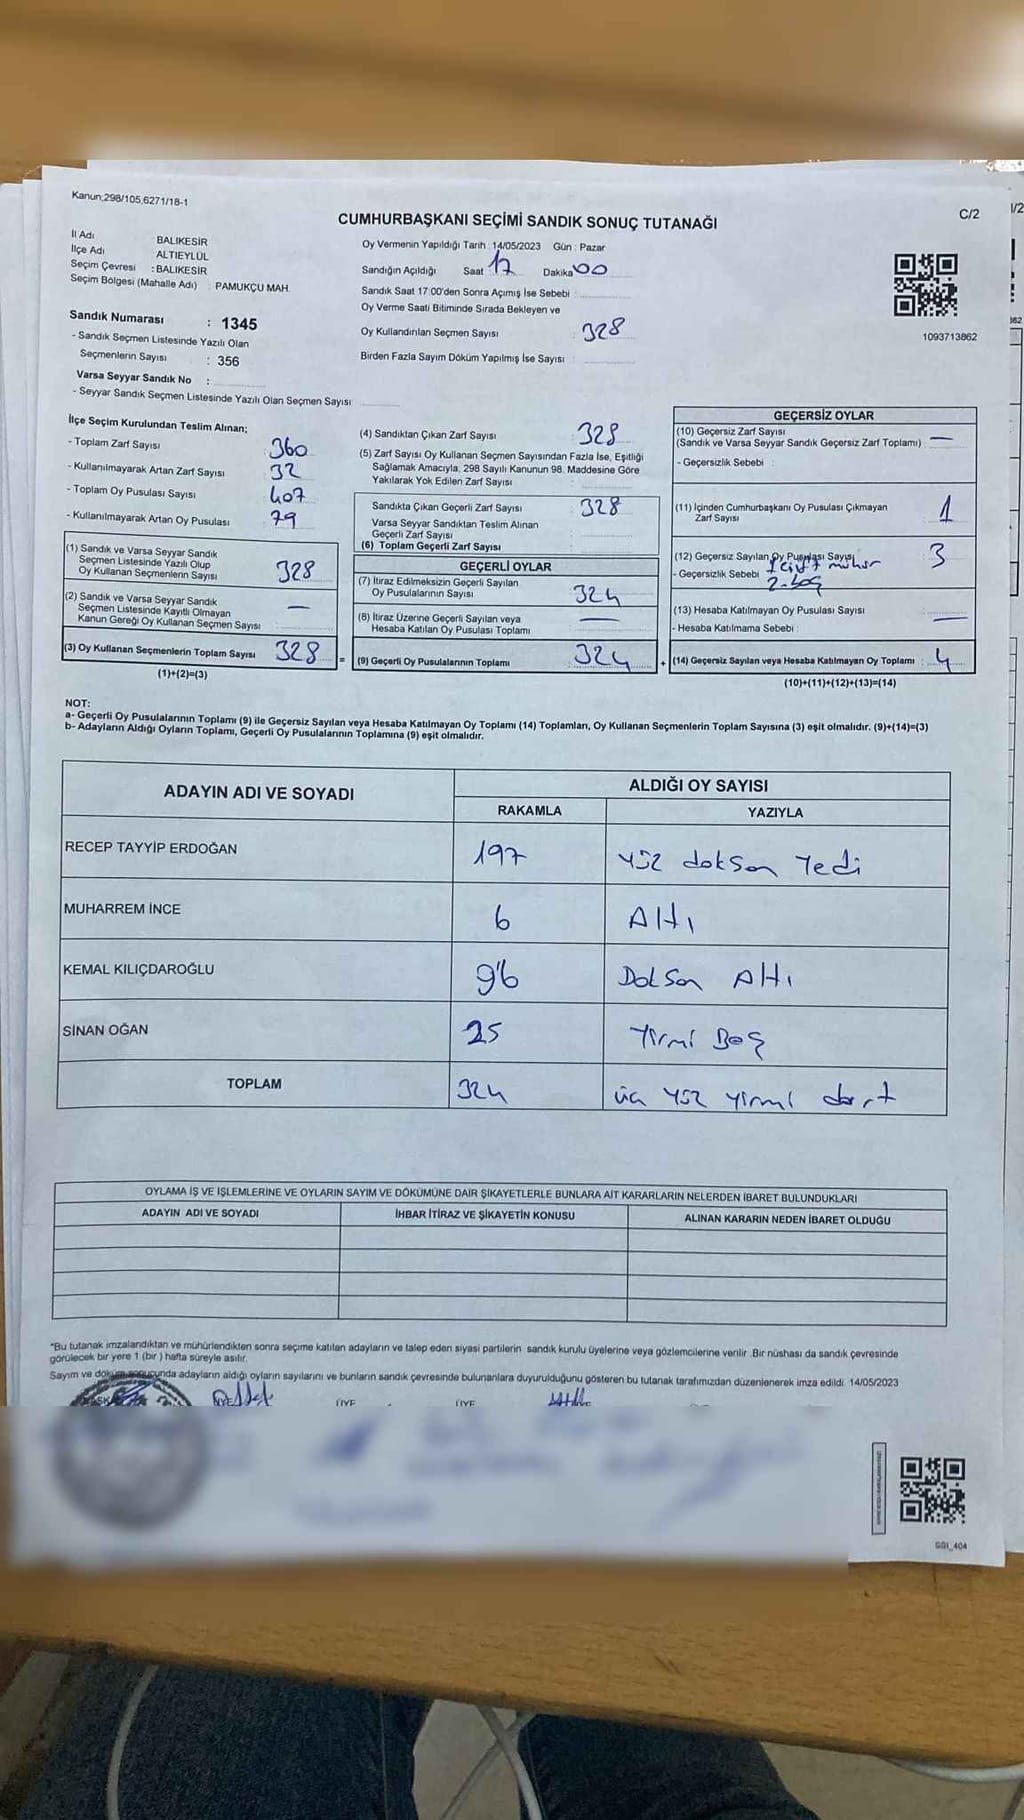 Kanun,298/105,6271/18-1
C/2
CUMHURBAŞKANI SEÇİMİ SANDIK SONUÇ TUTANAĞI
İl Adı BALIKESİR
İlçe Adı ALTIEYLÜL
Seçim Çevresi : BALIKESİR
Seçim Bölgesi (Mahalle Adı) : PAMUKÇU MAH.
Sandık Numarası : 1345
- Sandık Seçmen Listesinde Yazılı Olan
Seçmenlerin Sayısı : 356
Varsa Seyyar Sandık No :
- Seyyar Sandık Seçmen Listesinde Yazılı Olan Seçmen Sayısı
Oy Vermenin Yapıldığı Tarih : 14/05/2023 Gün : Pazar
Sandığın Açıldığı Saat 17 Dakika 00
Sandık Saat 17:00'den Sonra Açımış İse Sebebi :
Oy Verme Saati Bitiminde Sırada Bekleyen ve
Oy Kullandırılan Seçmen Sayısı 328
Birden Fazla Sayım Döküm Yapılmış İse Sayısı :
1093713862
İlçe Seçim Kurulundan Teslim Alınan;
- Toplam Zarf Sayısı 360
- Kullanılmayarak Artan Zarf Sayısı 32
- Toplam Oy Pusulası Sayısı 407
- Kullanılmayarak Artan Oy Pusulası 79
(1) Sandık ve Varsa Seyyar Sandık
Seçmen Listesinde Yazılı Olup
Oy Kullanan Seçmenlerin Sayısı 328
(2) Sandık ve Varsa Seyyar Sandık
Seçmen Listesinde Kayıtlı Olmayan
Kanun Gereği Oy Kullanan Seçmen Sayısı —
(3) Oy Kullanan Seçmenlerin Toplam Sayısı 328
(1)+(2)=(3)
(4) Sandıktan Çıkan Zarf Sayısı 328
(5) Zarf Sayısı Oy Kullanan Seçmen Sayısından Fazla İse, Eşitliği
Sağlamak Amacıyla, 298 Sayılı Kanunun 98. Maddesine Göre
Yakılarak Yok Edilen Zarf Sayısı
Sandıkta Çıkan Geçerli Zarf Sayısı 328
Varsa Seyyar Sandıktan Teslim Alınan
Geçerli Zarf Sayısı
(6) Toplam Geçerli Zarf Sayısı
GEÇERLİ OYLAR
(7) İtiraz Edilmeksizin Geçerli Sayılan
Oy Pusulalarının Sayısı 324
(8) İtiraz Üzerine Geçerli Sayılan veya
Hesaba Katılan Oy Pusulası Toplamı —
= (9) Geçerli Oy Pusulalarının Toplamı 324
GEÇERSİZ OYLAR
(10) Geçersiz Zarf Sayısı
(Sandık ve Varsa Seyyar Sandık Geçersiz Zarf Toplamı) : —
- Geçersizlik Sebebi :
(11) İçinden Cumhurbaşkanı Oy Pusulası Çıkmayan
Zarf Sayısı 1
(12) Geçersiz Sayılan Oy Pusulası Sayısı 3
- Geçersizlik Sebebi 1 çift mühür
2-boş
(13) Hesaba Katılmayan Oy Pusulası Sayısı
- Hesaba Katılmama Sebebi : —
+ (14) Geçersiz Sayılan veya Hesaba Katılmayan Oy Toplamı : 4
(10)+(11)+(12)+(13)=(14)
NOT:
a- Geçerli Oy Pusulalarının Toplamı (9) ile Geçersiz Sayılan veya Hesaba Katılmayan Oy Toplamı (14) Toplamları, Oy Kullanan Seçmenlerin Toplam Sayısına (3) eşit olmalıdır. (9)+(14)=(3)
b- Adayların Aldığı Oyların Toplamı, Geçerli Oy Pusulalarının Toplamına (9) eşit olmalıdır.
ADAYIN ADI VE SOYADI ALDIĞI OY SAYISI
RAKAMLA YAZIYLA
RECEP TAYYİP ERDOĞAN 197 yüz doksan Yedi
MUHARREM İNCE 6 Altı
KEMAL KILIÇDAROĞLU 96 Doksan Altı
SİNAN OĞAN 25 Yirmi Beş
TOPLAM 324 üç yüz yirmi dört
OYLAMA İŞ VE İŞLEMLERİNE VE OYLARIN SAYIM VE DÖKÜMÜNE DAİR ŞİKAYETLERLE BUNLARA AİT KARARLARIN NELERDEN İBARET BULUNDUKLARI
ADAYIN ADI VE SOYADI İHBAR İTİRAZ VE ŞİKAYETİN KONUSU ALINAN KARARIN NEDEN İBARET OLDUĞU
*Bu tutanak imzalandıktan ve mühürlendikten sonra seçime katılan adayların ve talep eden siyasi partilerin sandık kurulu üyelerine veya gözlemcilerine verilir .Bir nüshası da sandık çevresinde
görülecek bir yere 1 (bir ) hafta süreyle asılır.
Sayım ve döküm sonucunda adayların aldığı oyların sayılarını ve bunların sandık çevresinde bulunanlara duyurulduğunu gösteren bu tutanak tarafımızdan düzenlenerek imza edildi. 14/05/2023
ÜYE ÜYE
GGI_404